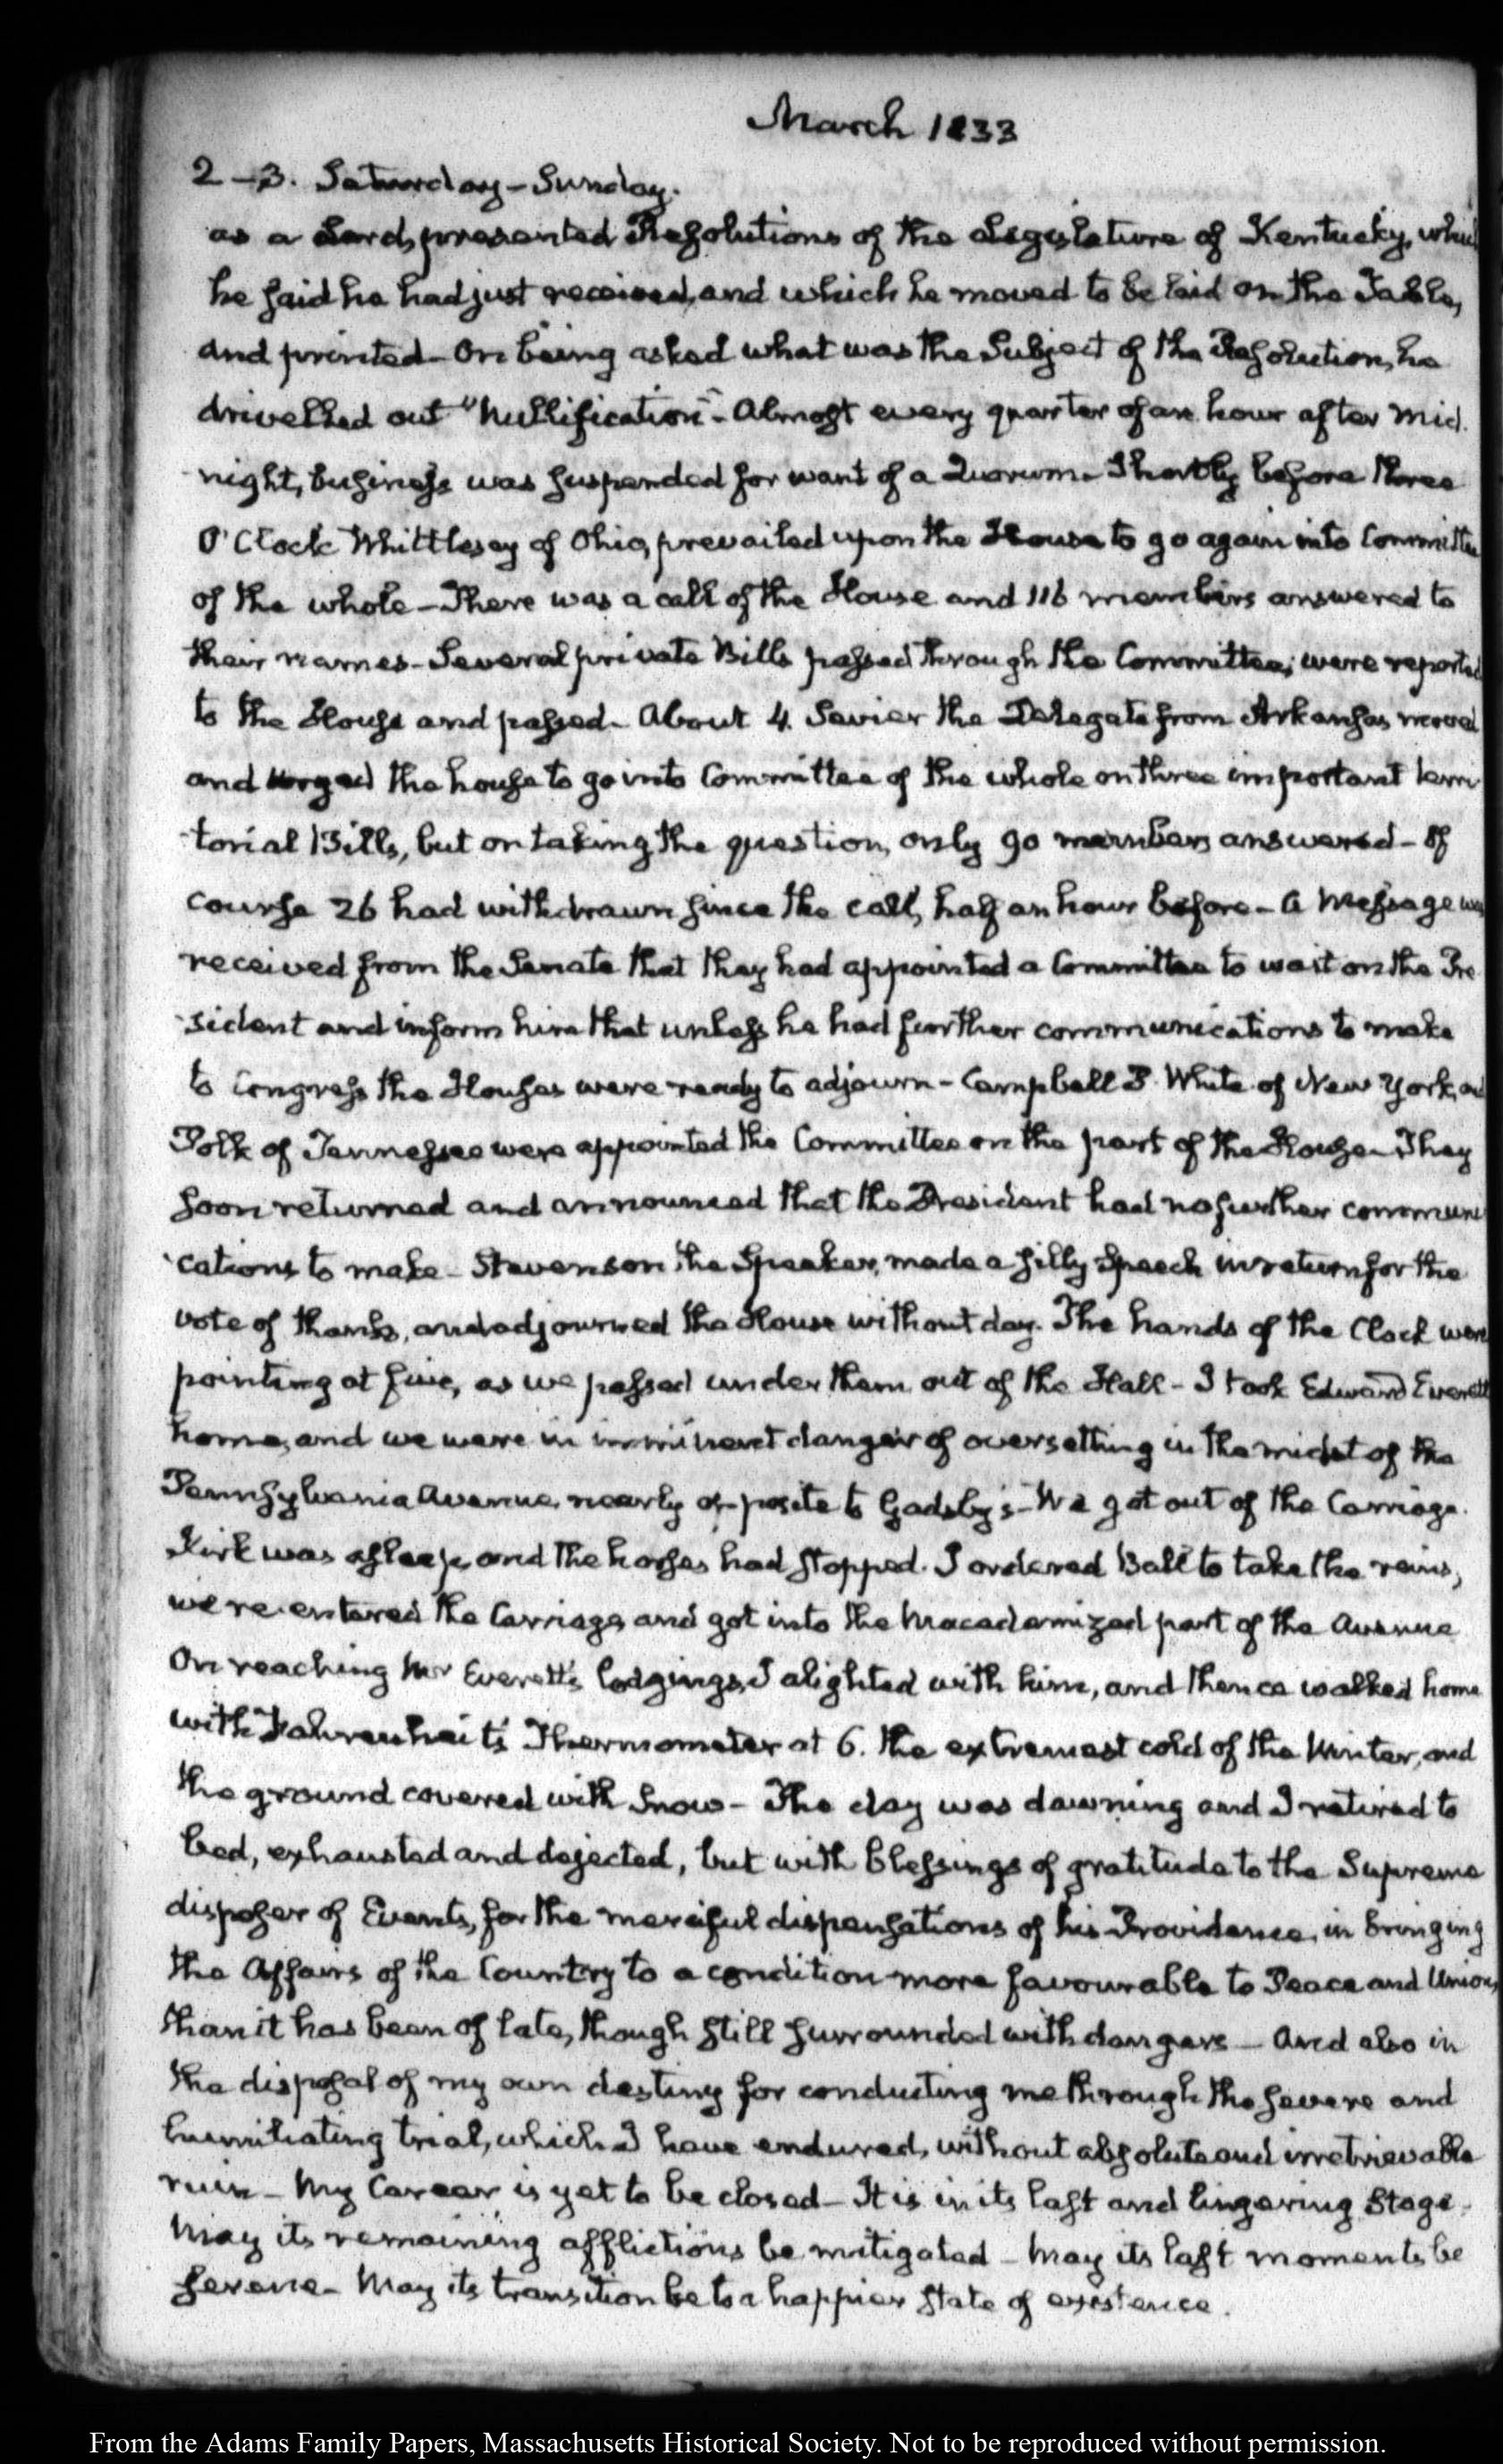 March 1833
2-3. Saturday-Sunday.
as a Lord, presented Resolutions of the Legislature of Kentucky, which
he said he had just received, and which he moved to be laid on the Table,
and printed- On being asked what was the Subject of the Resolution, he
drivelled out "Nullification"- Almost every quarter of an hour after mid
night, business was suspended for want of a Quorum- Shortly before three
O'Clock Whittlesey of Ohio, prevailed upon the House to go again into Committee
of the whole- There was a call of the House and 116 members answered to
their names- Several private Bills passed through the Committee; were reported
to the House and passed- About 4. Sevier the Delegate from Arkansas moved
and urged the house to go into Committee of the whole on three important terri
-torial Bills, but on taking the question, only 90 members answered- Of
course 26 had withdrawn since the call, half an hour before- A Message was
received from the Senate that they had appointed a Committee to wait on the Pre
-sident and inform him that unless he had further communications to make
to Congress the Houses were ready to adjourn- Campbell P. White of New York, and
Polk of Tennessee were appointed the Committee on the part of the House- They
soon returned and announced that the President had no further communi
-cations to make- Stevenson the Speaker, made a silly Speech in return for the
vote of thanks, and adjourned the House without day. The hands of the Clock were
pointing at five, as we passed under them out of the Hall- I took Edward Everett
home, and we were in imminent danger of oversetting in the midst of the
Pennsylvania Avenue, nearly opposite to Gadsby's- We got out of the Carriage.
Kirk was asleep, and the horses had stopped. I ordered Ball to take the reins,
we re-entered the Carriage, and got into the Macadamized part of the Avenue
On reaching Mr Everett's lodgings, I alighted with him, and thence walked home
with Fahrenheit's Thermometer at 6. the extremest cold of the Winter, and
the ground covered with Snow- The day was dawning and I retired to
bed, exhausted and dejected, but with blessings of gratitude to the Supreme
disposer of Events, for the merciful dispensations of his Providence, in bringing
the Affairs of the Country to a condition more favourable to Peace and Union,
than it has been of late, though still surrounded with dangers- And also in
the disposal of my own destiny for conducting me through the severe and
humiliating trial, which I have endured, without absolute and irretrievable
ruin- My Career is yet to be closed- It is in its last and lingering Stage.
May its remaining afflictions be mitigated- May its last moments be
serene- May its transition be to a happier state of existence.
From the Adams Family Papers, Massachusetts Historical Society. Not to be reproduced without permission.